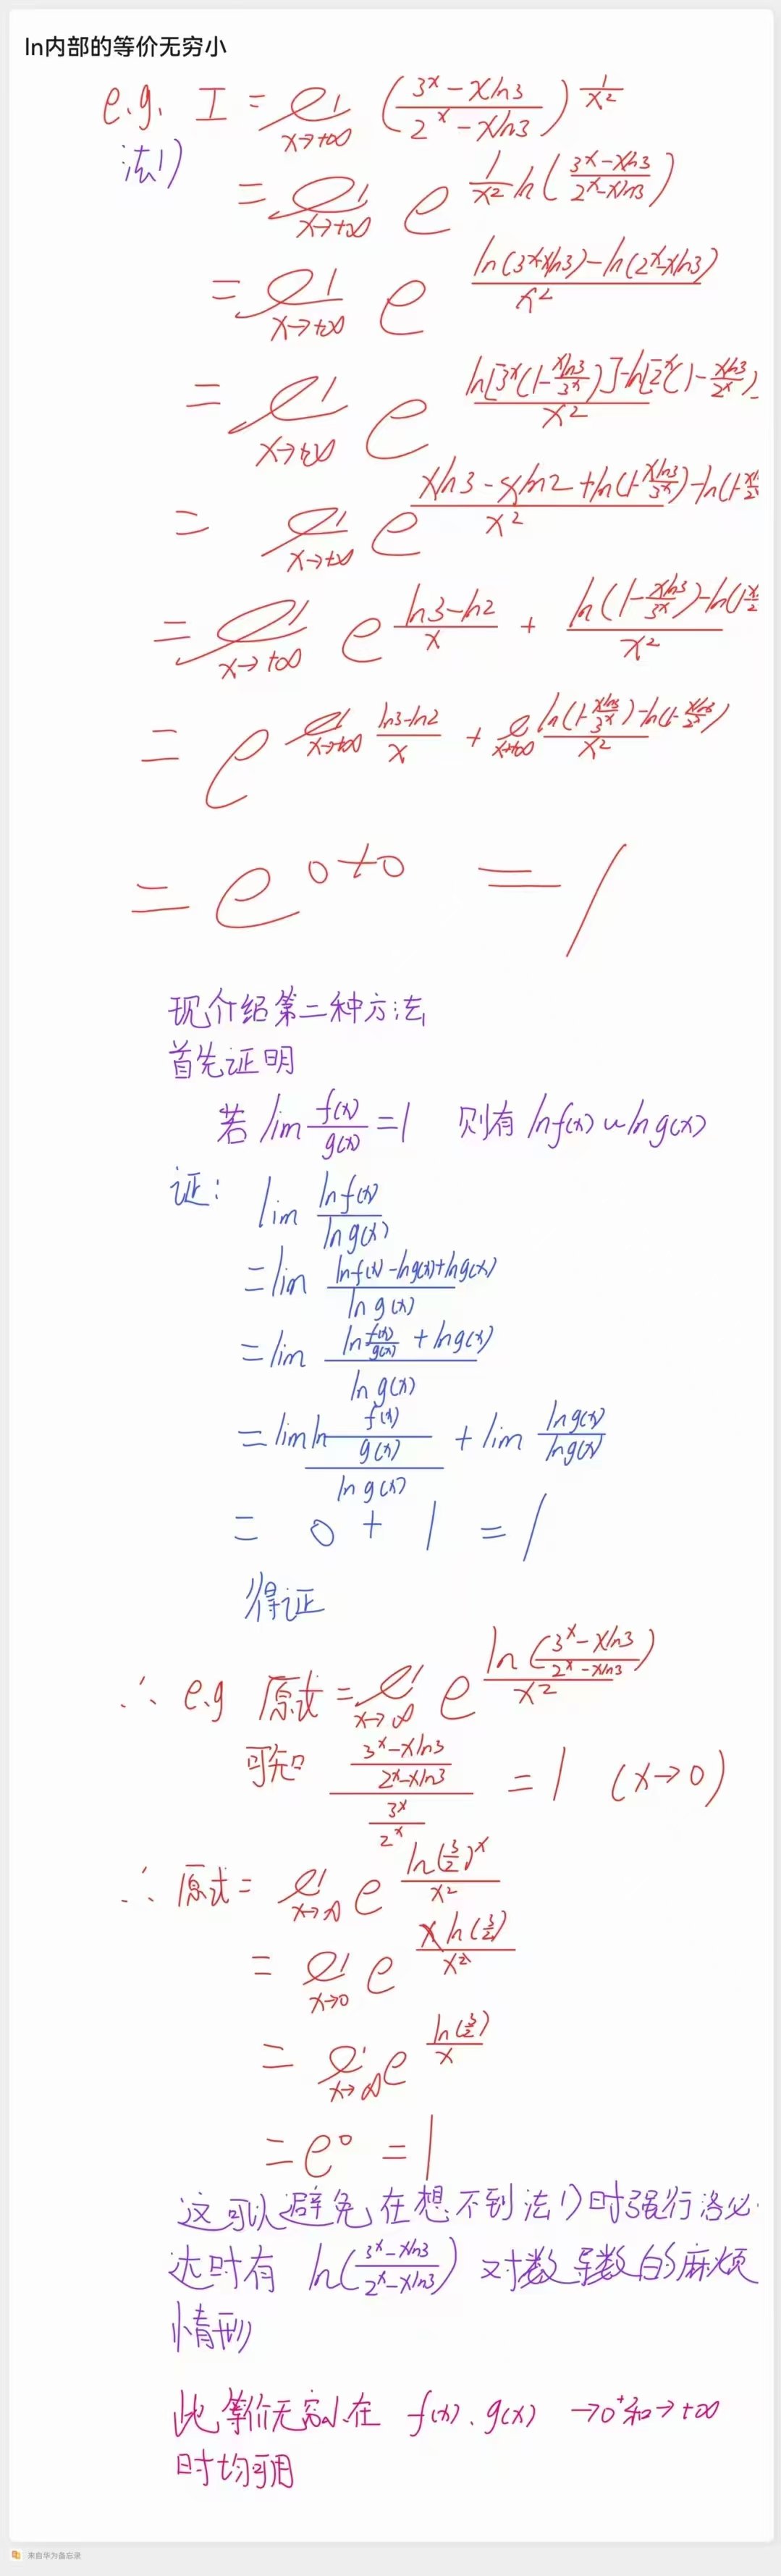 ln内部的等价无穷小
e.g. I = lim_{x→+∞} ((3^x - xln3)/(2^x - xln3))^{1/x²}
法1)
= lim_{x→+∞} e^{1/x² ln((3^x-xln3)/(2^x-xln3))}
= lim_{x→+∞} e^{(ln(3^x-xln3)-ln(2^x-xln3))/x²}
= lim_{x→+∞} e^{(ln[3^x(1-xln3/3^x)]-ln[2^x(1-xln3/2^x)])/x²}
= lim_{x→+∞} e^{(xln3-xln2+ln(1-xln3/3^x)-ln(1-xln3/2^x))/x²}
= lim_{x→+∞} e^{(ln3-ln2)/x + (ln(1-xln3/3^x)-ln(1-xln3/2^x))/x²}
= e^{lim_{x→+∞} (ln3-ln2)/x + lim_{x→+∞} (ln(1-xln3/3^x)-ln(1-xln3/2^x))/x²}
= e^{0+0} = 1
现介绍第二种方法
首先证明
若 lim f(x)/g(x) = 1 则有 lnf(x) ~ lng(x)
证: lim lnf(x)/lng(x)
= lim (lnf(x)-lng(x)+lng(x))/lng(x)
= lim (ln(f(x)/g(x)) + lng(x))/lng(x)
= lim ln(f(x)/g(x))/lng(x) + lim lng(x)/lng(x)
= 0 + 1 = 1
得证
∴ e.g 原式 = lim_{x→∞} e^{ln((3^x-xln3)/(2^x-xln3))/x²}
可知 ((3^x-xln3)/(2^x-xln3))/(3^x/2^x) = 1 (x→0)
∴ 原式 = lim_{x→∞} e^{ln(3/2)^x/x²}
= lim_{x→0} e^{xln(3/2)/x²}
= lim_{x→∞} e^{ln(3/2)/x}
= e^0 = 1
这可以避免在想不到法1)时强行洛必
达时有 ln((3^x-xln3)/(2^x-xln3)) 对数导数的麻烦
情形
此等价无穷小在 f(x).g(x) →0⁺和→+∞
时均可用
来自华为备忘录